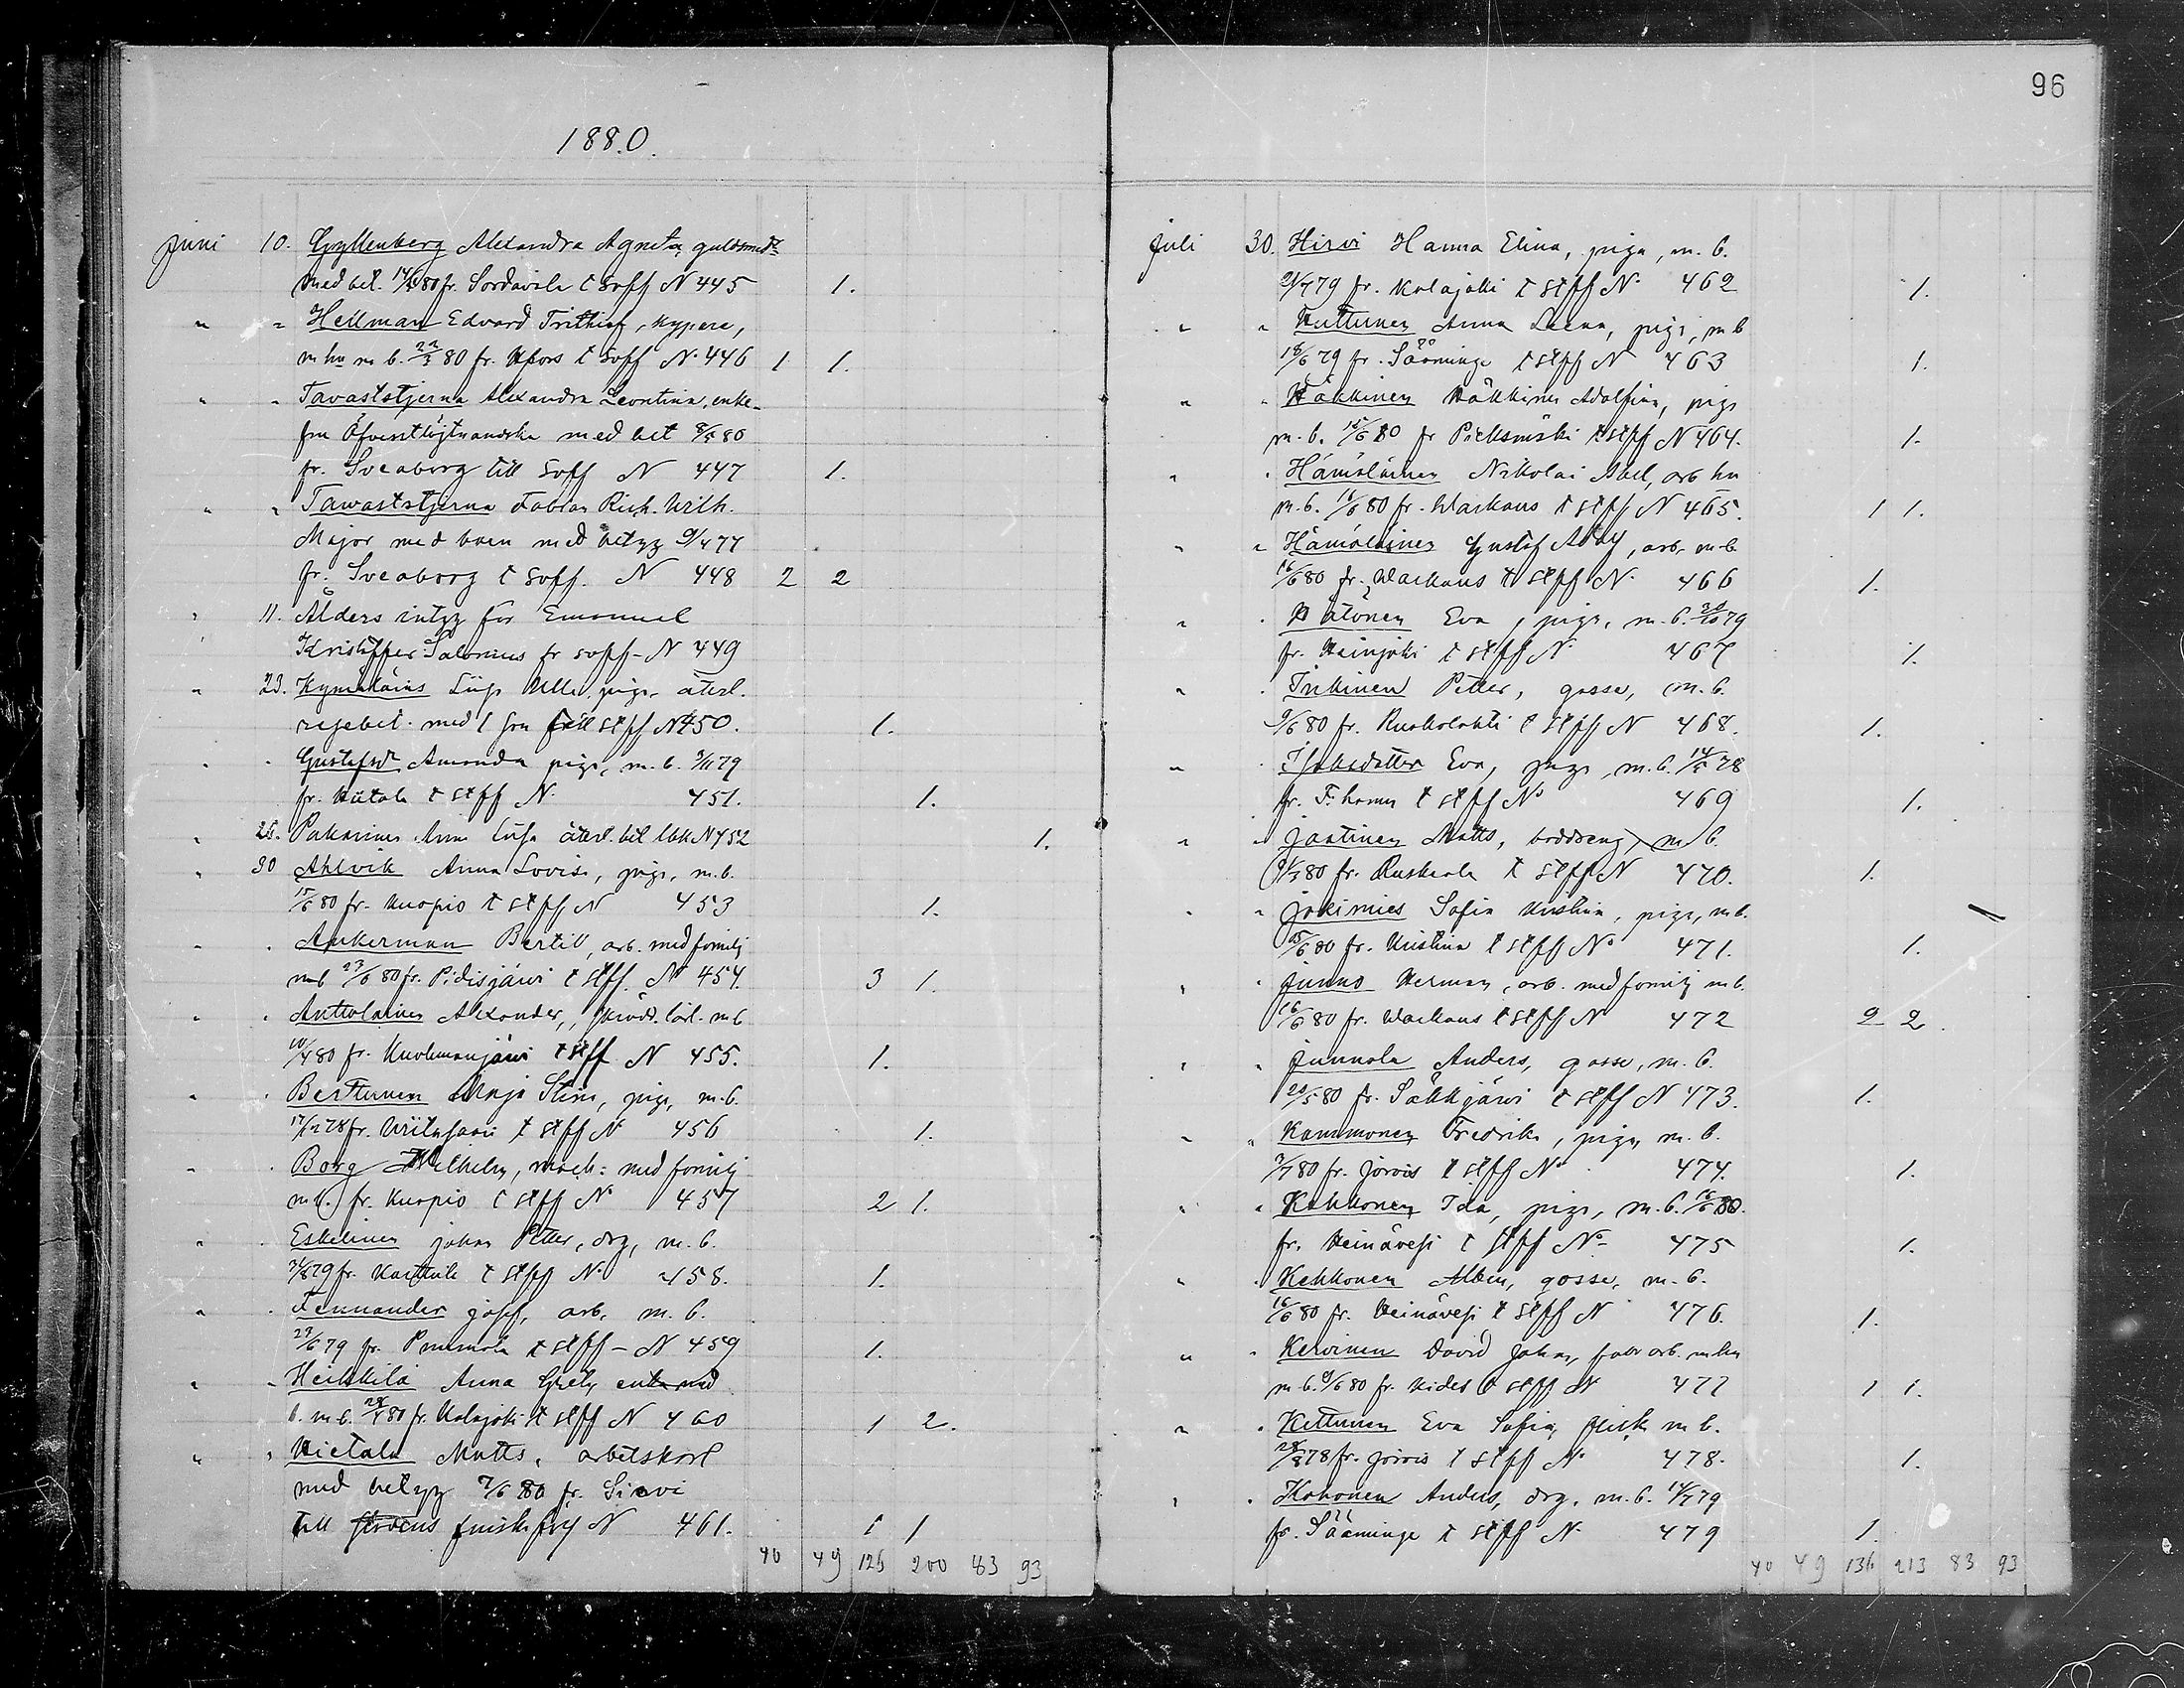 96
1880.
Juni 10. Gyllenberg Alexandra Agneta,
med bet. 80 fr. Sordavila t soff N 445 1.
" " Hellman Edvard Frithiof, kypere,
m hu m b. 22/3 80 fr. Hfors t soff N. 446 1 1.
" " Tavaststjerna Alexandra Leontina, enke-
fru Öfverstlöjtnandska med bet 8/5 80
fr. Sveaborg till soff N 447 1.
" " Tawaststjerna Fabian Rich. Wilh.
Major med barn med betyg 9/4 77
fr. Sveaborg t soff. N 448 2 2
" 11. Ålders intyg för Emanuel
Kristoffer Salonius fr soff - N 449
" 23. Kymäläins Liisa Ulla, piga, återl.
resebet. med 1 son till stff N 450. 1.
" " Gustafsdr Amanda piga, m. b. 79
fr. Hiitola t stff N 451. 1.
" 26. Pakarinen Anna Liisa återl. bet N 452 1.
" 30 Ahlvik Anna Lovisa, piga, m. b.
15/6 80 fr. Kuopio t stff N 453 1.
" " Ankerman Bertil, arb. med familj
m b 23/6 80 fr. Pidisjärvi t stff. N 454 3 1.
" " Anttolainen Alexander, skrädd. lärl. m b
10/4 80 fr. t stff N 455. 1.
" " Berttunen Maja Stina, piga, m. b.
17/12 78 fr. t stff N 456 1.
" " Borg Wilhelm, mach: med familj
m b. fr. Kuopio t stff N 457 2 1.
" " Eskelinen Johan Petter, drg, m. b.
79 fr. Karttula t stff N 458. 1.
" " Fennander Josef, arb. m. b.
79 fr. Pummola t stff - N 459 1.
" " Heikkilä Anna Greta enka med
b. m b. 80 fr. Kalajoki t stff N 460 1 2.
" " Hietala Matts, arbetskarl
med betyg 7/6 80 fr. Sievi
till finska förs N 461. 1 1
40 49 126 200 83 93
Juli 30. Hirvi Hanna Elina, piga, m. b.
79 fr. Kalajoki t stff N. 462 1.
" " Huttunen Anna Leena, piga, m b
18/6 79 fr. Sääminge t stff N 463 1.
" " Häkkinen Häkkinen Adolfina, piga
m. b. 15/6 80 fr Pieksmäki t stff N 464. 1.
" " Hämäläinen Nikolai Abel, arb hu
m. b. 16/6 80 fr. Warkaus t stff N 465. 1 1.
" " Hämäläinen Gustaf Adolf, arb. m b
16/6 80 fr. Warkaus t stff N. 466 1.
" " Hätönen Eva, piga, m. b. 79
fr. Heinjoki t stff N 467 1.
" " Inkinen Petter, gosse, m. b.
9/6 80 fr. Ruokolahti t stff N 468. 1.
" " Isaksdotter Eva, piga, m. b. 14/5 78
fr. F:hamn t stff No 469 1.
" " Jantinen Matts, m b.
80 fr. Ruskeala t stff N 470. 1.
" " Jokimies Sofia Kristina, piga, m b.
15/6 80 fr. Kristina t stff No 471. 1.
" " Junno Herman, arb. med familj m b.
16/6 80 fr. Warkaus t stff N 472 2 2.
" " Junnola Anders, gosse, m. b.
80 fr. Säkkjärvi t stff N 473. 1.
" " Kammonen Fredrika, piga, m. b.
80 fr. Jorois t stff No 474. 1.
" " Kekkonen Ida, piga, m. b. 16/6 80.
fr. Heinävesi t stff No 475 1.
" " Kekkonen Albin, gosse, m. b.
16/6 80 fr. Heinävesi t stff N 476. 1.
" " Kervinen David Johan, arb. m hu
m b. 9/6 80 fr. Kides t stff N 477 1 1.
" " Kettunen Eva Sofia, m b.
78 fr. Jorois t stff No 478. 1.
" " Kohonen Anders, drg. m. b. 79
fr. Sääminge t stff N 479 1.
40 49 136 213 83 93